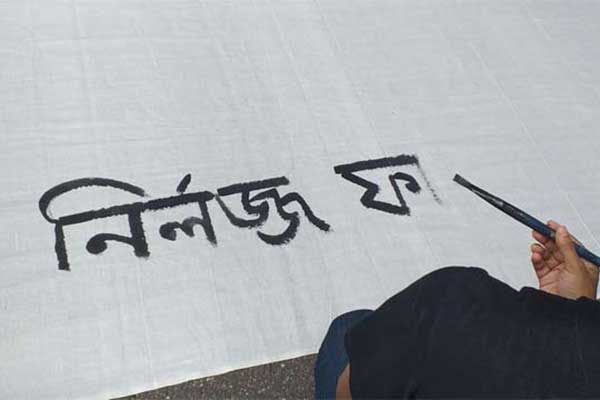 নির্লজ্জ ফা